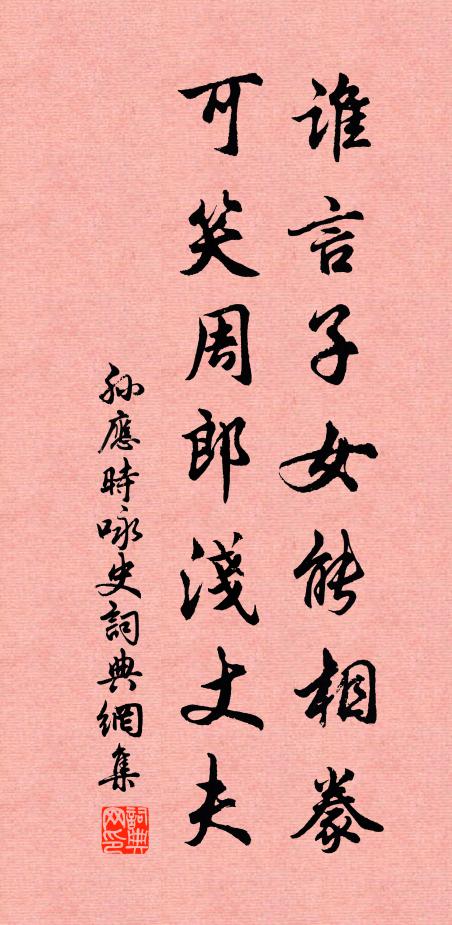 誰言子女能相豢
可笑周郎淺丈夫
孫應時咏史詞典網集
詞典网印